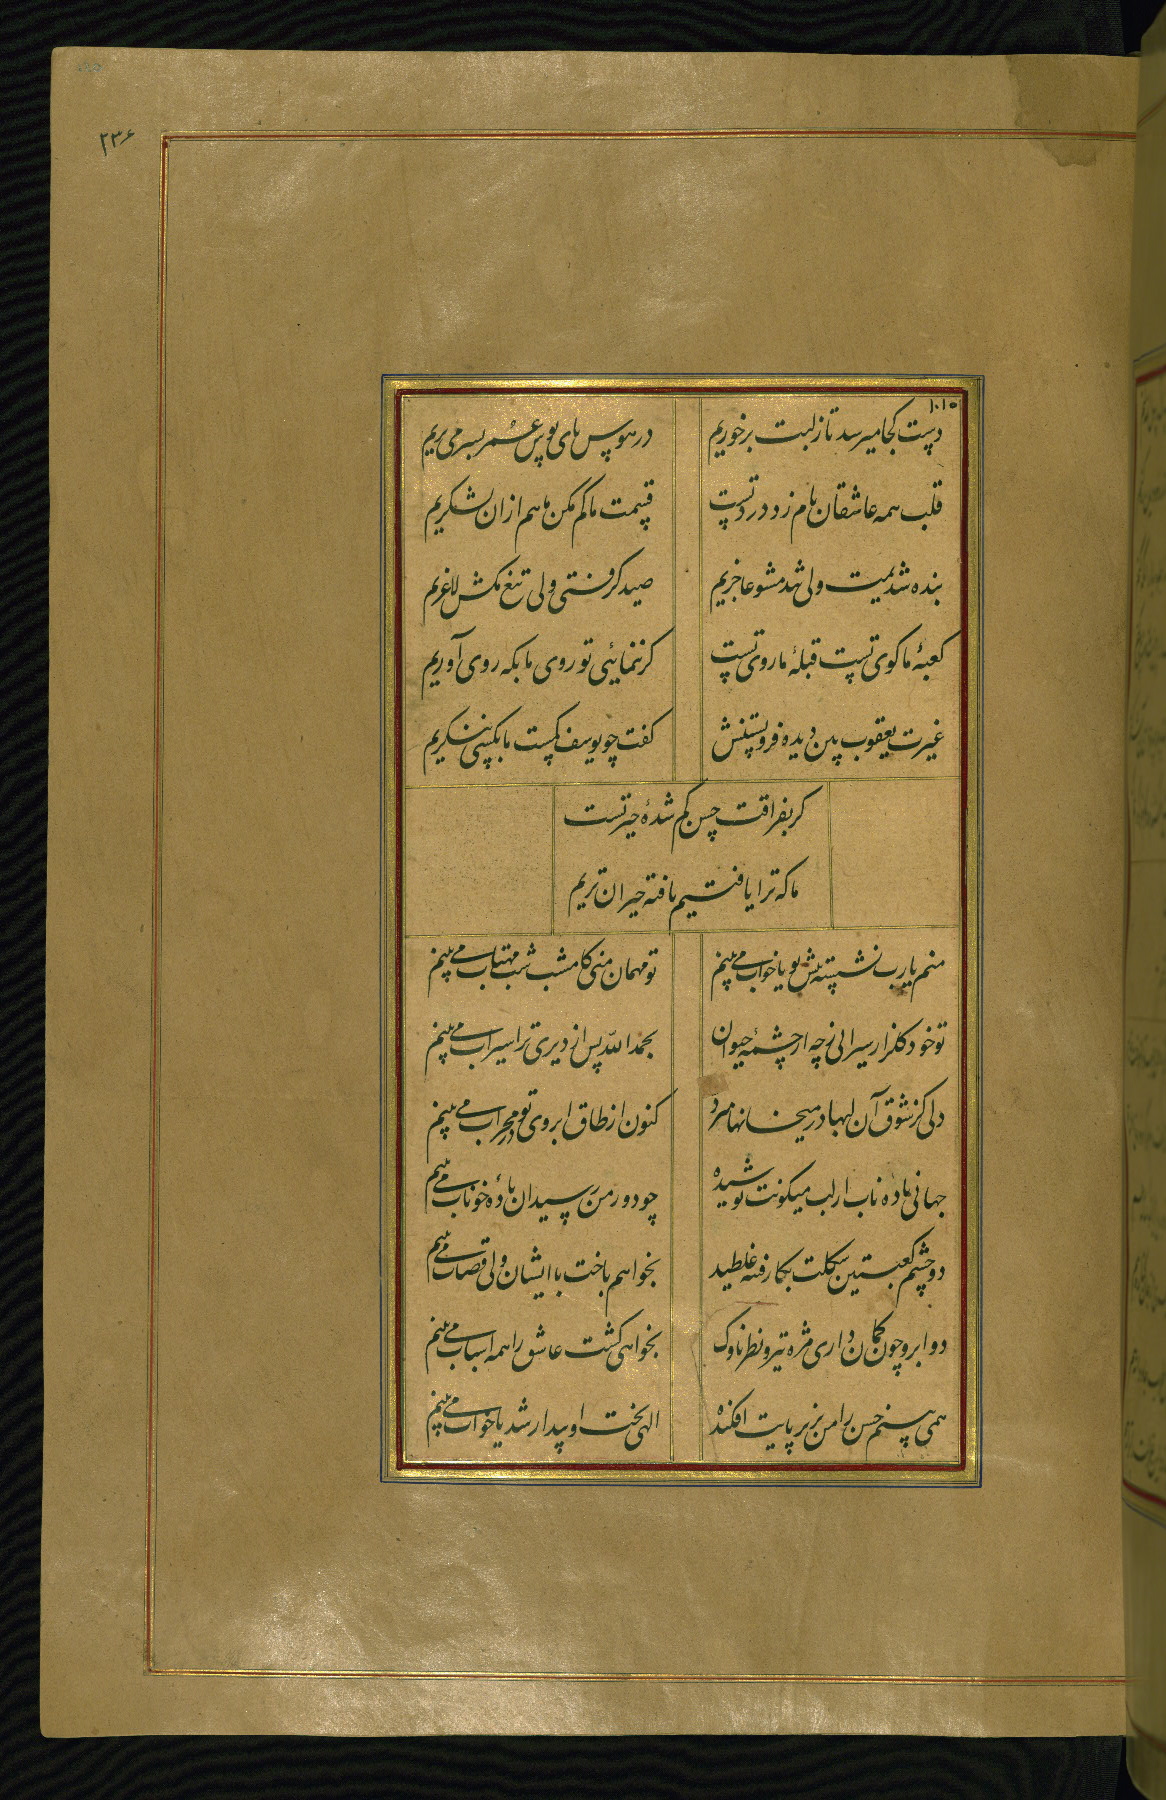 ۲۳۶
۱۰۱۵
دست کجا میرسد تا ز لبت برخوریم
در هوس پای بوس عمر بسر می بریم
قلب همه عاشقان نام زد درد تست
قسمت ما کم مکن ما هم ازان لشکریم
بنده شدیمت ولی شهد مشو عاجزیم
صید گرفتی ولی تیغ مکش لاغریم
کعبهٔ ما کوی تست قبلهٔ ما روی تست
گر ننمایئی تو روی ما بکه روی آوریم
غیرت یعقوب بین دیده فرو بستنش
گفت چو یوسف کست ما بکسی ننگریم
گر بفراقت حسن گم شدهٔ حیرتست
ما که ترا یافتیم یافته حیران تریم
منم یارب نشسته پیش تو یا خواب می بینم
تو مهمان منی کامشب شب مهتاب می بینم
تو خود گلزار سیرابی ز چه از چشمهٔ حیوان
بحمدالله پس از دیری ترا سیراب می بینم
دلی کز شوق آن لبها در میخانها میزد
کنون از طاق ابروی تو در محراب می بینم
جهانی باده ناب از لب میگونت نوشیده
چو دور من رسید آن بادهٔ خوناب می بینم
دو چشم کعبتین شکلت بکار فتنه غلطید
بخواهم باخت با ایشان ولی قصاب می بینم
دو ابرو چون کمان داری مژه تیر و نظر ناوک
بخواهی کشت عاشق را همه اسباب می بینم
همی بینم حسن را من بزیر پایت افکنده
الهی بخت او بیدار شد یا خواب می بینم